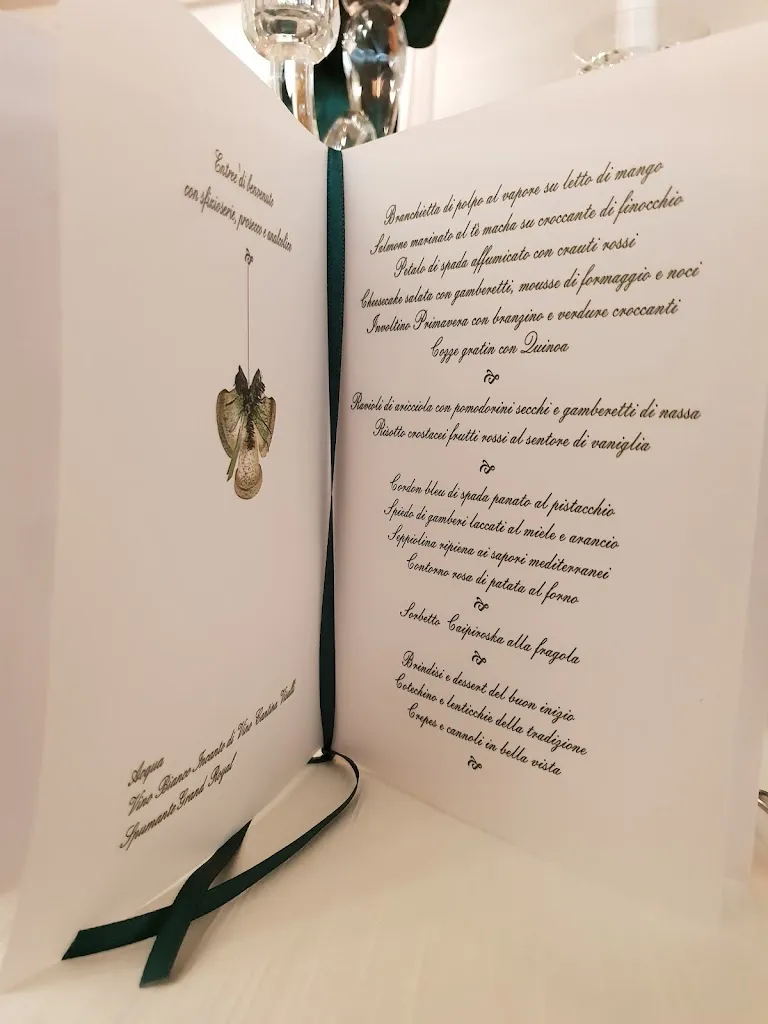 Entree di benvenuto
con sfizioserie, prosecco e analcolico
Acqua
Vino Bianco Incanto di Vino Cantina Vitulli
Spumante Grand Royal
Branchietta di polpo al vapore su letto di mango
Salmone marinato al tè macha su croccante di finocchio
Petalo di spada affumicato con crauti rossi
Cheesecake salata con gamberetti, mousse di formaggio e noci
Involtino Primavera con branzino e verdure croccanti
Cozze gratin con Quinoa
Ravioli di aricciola con pomodorini secchi e gamberetti di nassa
Risotto crostacei frutti rossi al sentore di vaniglia
Cordon bleu di spada panato al pistacchio
Spiedo di gamberi laccati al miele e arancio
Seppiolina ripiena ai sapori mediterranei
Contorno rosa di patata al forno
Sorbetto Caipiroska alla fragola
Brindisi e dessert del buon inizio
Cotechino e lenticchie della tradizione
Crepes e cannoli in bella vista